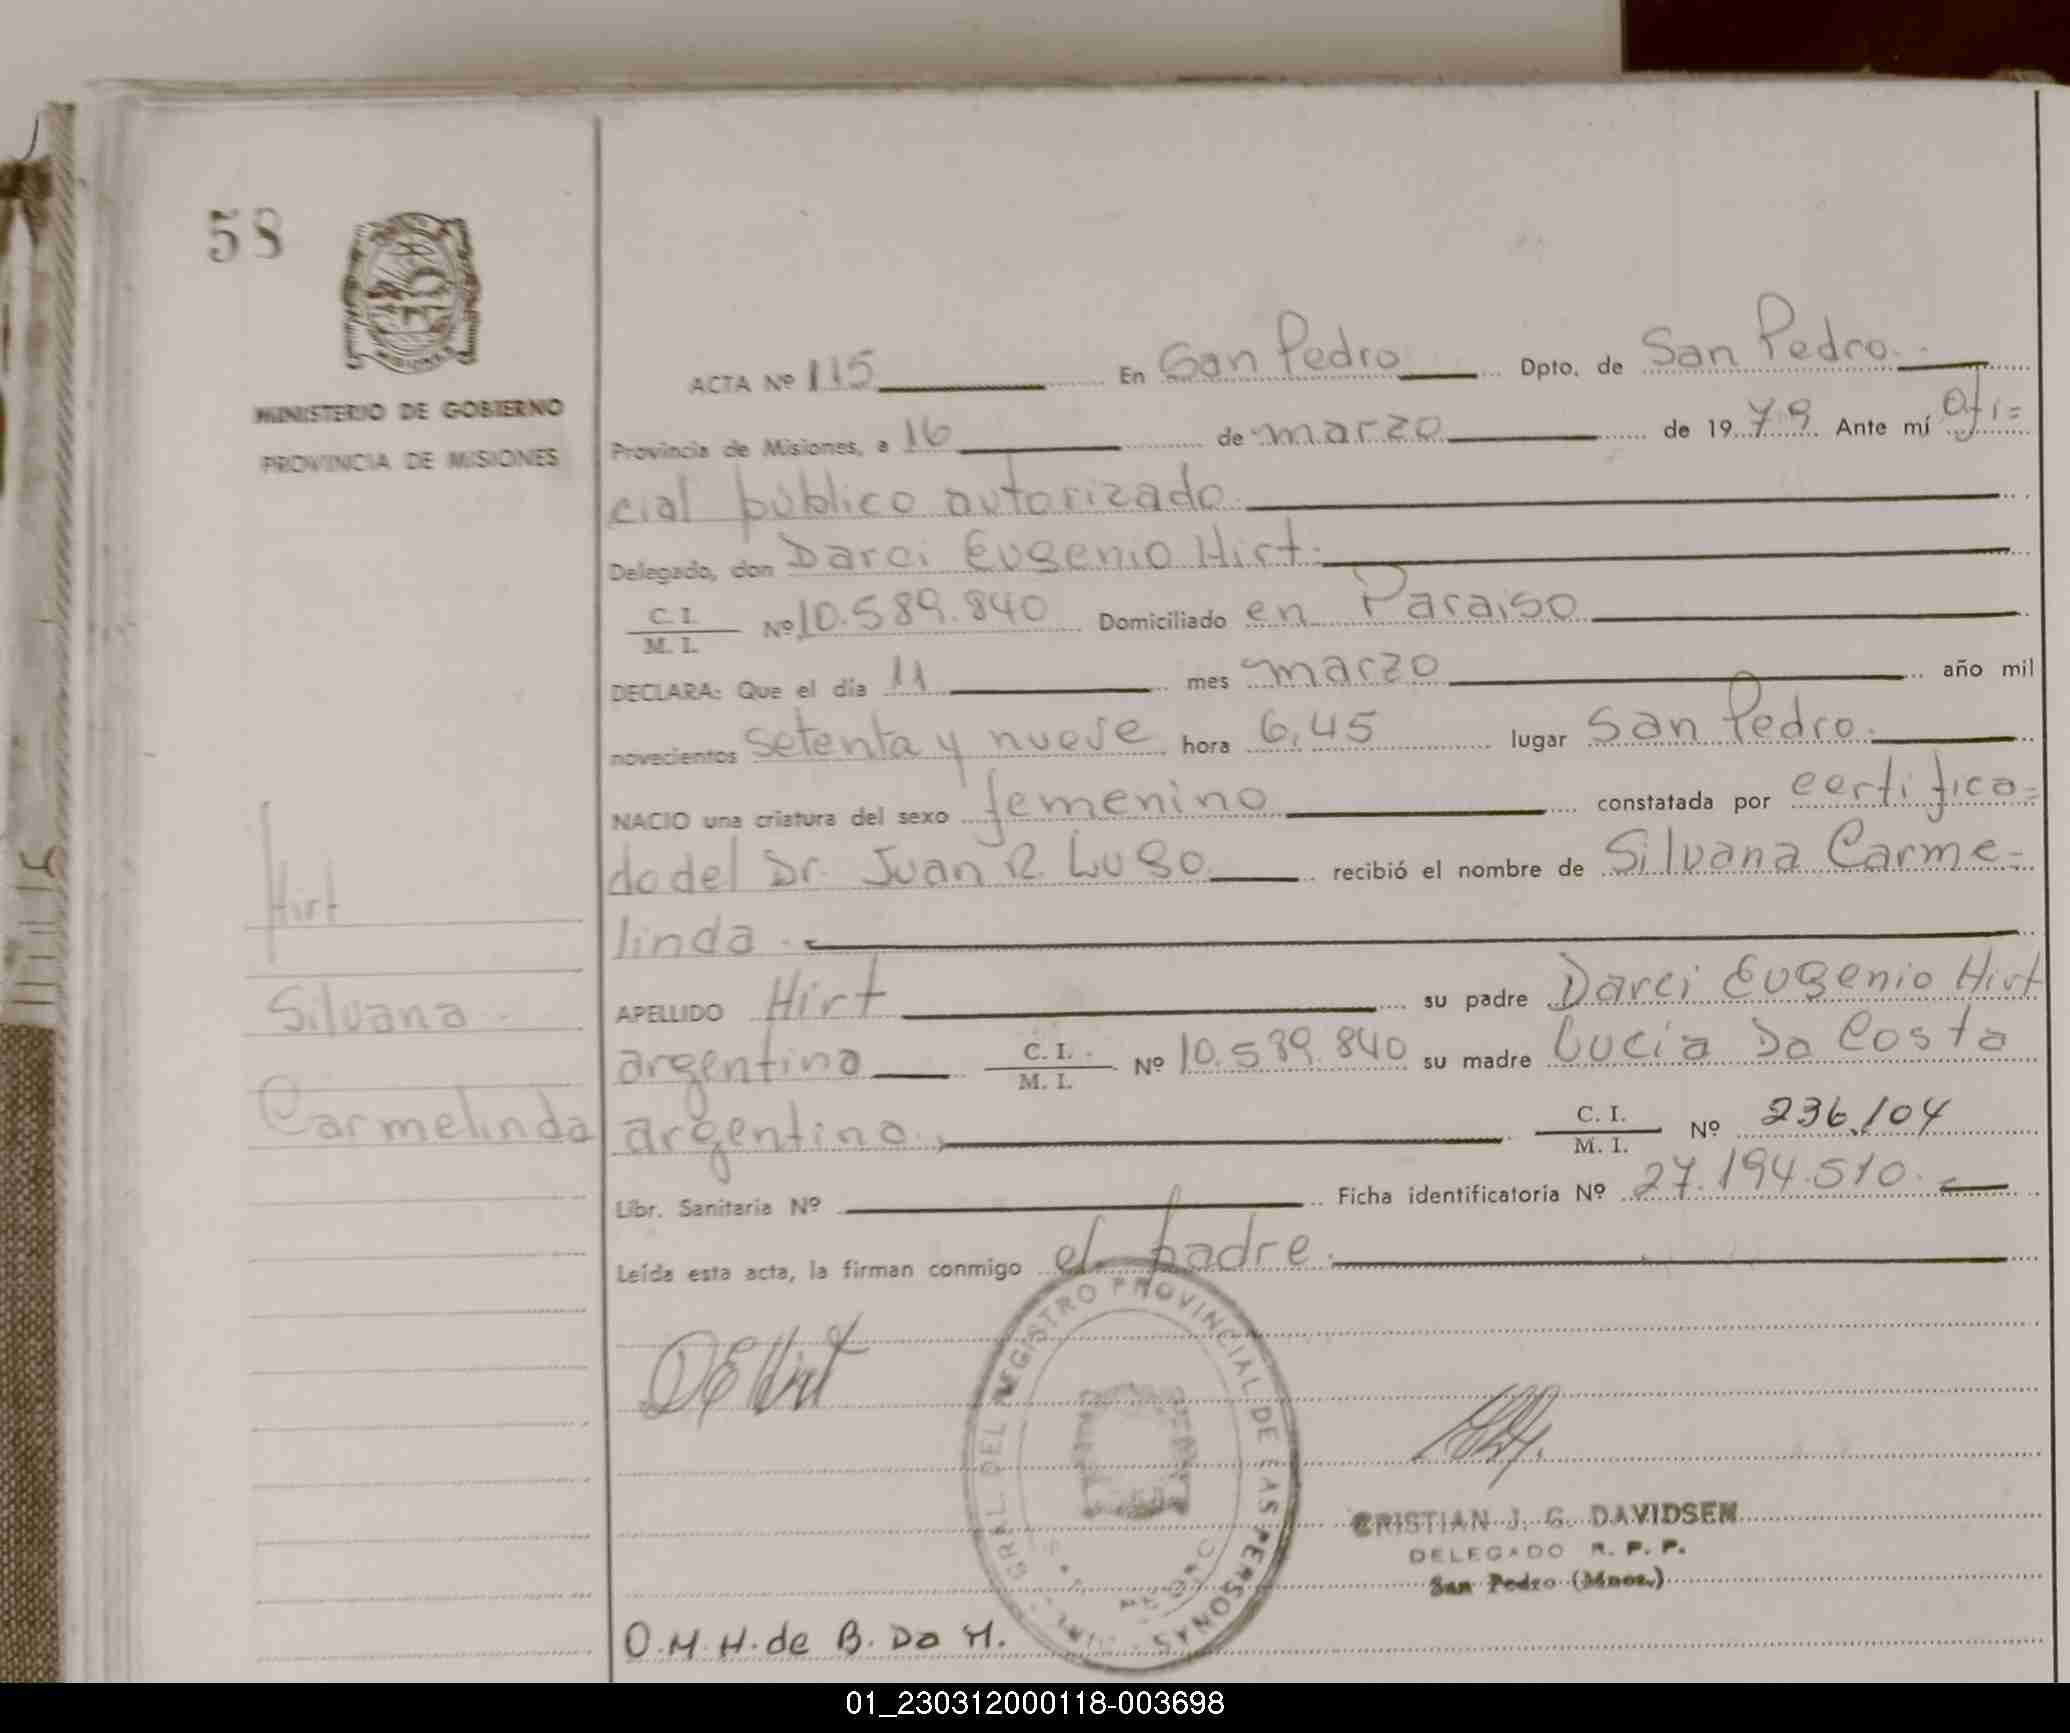 58
MINISTERIO DE GOBIERNO
PROVINCIA DE MISIONES
Hirt
Silvana
Carmelinda
ACTA Nº 115 En San Pedro Dpto. de San Pedro
Provincia de Misiones, a 16 de marzo de 1979 Ante mí Ofi=
cial público autorizado
Delegado, don Darci Eugenio Hirt.
C. I.
M. I. Nº 10.589.840 Domiciliado en Paraiso
DECLARA: Que el día 11 mes marzo año mil
novecientos setenta y nueve hora 6,45 lugar San Pedro.
NACIO una criatura del sexo femenino constatada por certifica=
do del Dr. Juan R. Lugo recibió el nombre de Silvana Carme=
linda.
APELLIDO Hirt su padre Darci Eugenio Hirt
argentino C. I.
M. I. Nº 10.589.840 su madre Lucia Da Costa
argentina. C. I.
M. I. Nº 236.104
Libr. Sanitaria Nº Ficha identificatoria Nº 27.194.510.
Leída esta acta, la firman conmigo el padre.
D E Hirt
GRAL. DEL REGISTRO PROVINCIAL DE LAS PERSONAS
CRISTIAN J. G. DAVIDSEN
DELEGADO R. P. P.
San Pedro (Mnes.)
O.M.H. de B. Da M.
01_230312000118-003698